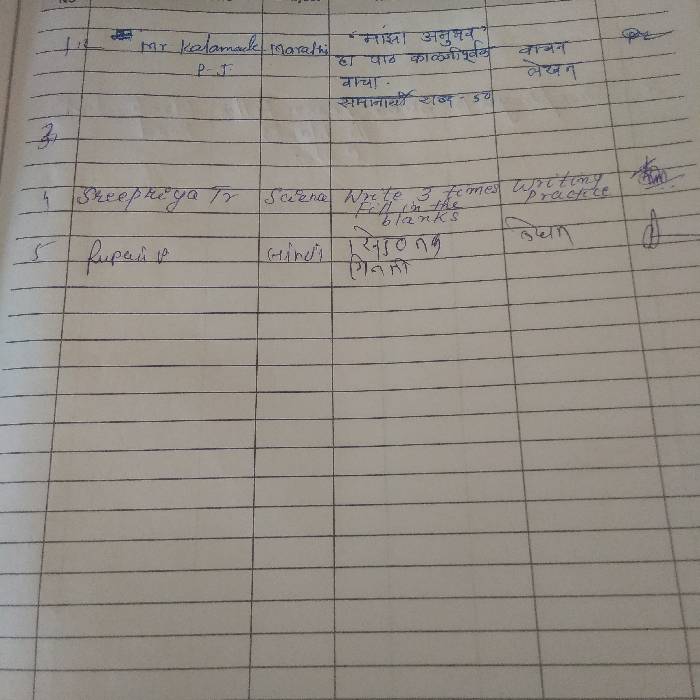 "माझा अनुभव"
1,2 Mr Kalamade Marathi हा पाठ काळजीपूर्वक वाचन
P. J. वाचा. लेखन
समानार्थी शब्द -
3,
4 Sreepriya Tr Science Write 3 times Writing
Fill in the Practice
blanks
5 Rupali Hindi 1 से 50 तक लेखन
गिनती